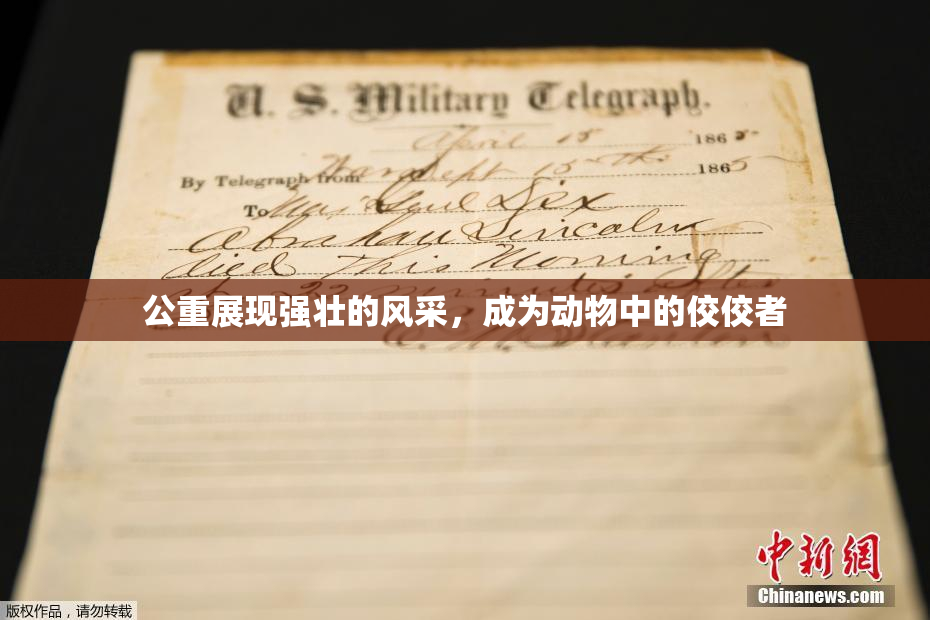 U. S. Military Telegraph.
April 15 1865
By Telegraph from War Dept 15th 1865
To Maj Genl Dix
Abraham Lincoln
died This Morning
at 22 minutes after
公重展现强壮的风采，成为动物中的佼佼者
中新網
Chinanews.com
版权作品，请勿转载